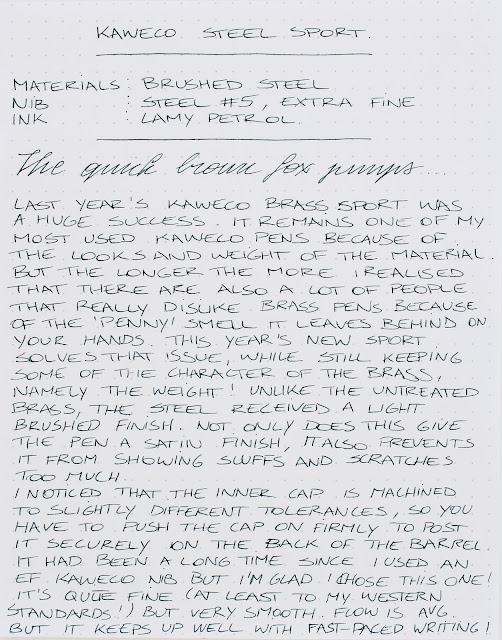 KAWECO STEEL SPORT.
MATERIALS : BRUSHED STEEL
NIB : STEEL #5, EXTRA FINE
INK : LAMY PETROL.
The quick brown fox jumps...
LAST YEAR'S KAWECO BRASS SPORT WAS
A HUGE SUCCESS. IT REMAINS ONE OF MY
MOST USED KAWECO PENS BECAUSE OF
THE LOOKS AND WEIGHT OF THE MATERIAL.
BUT THE LONGER THE MORE I REALISED
THAT THERE ARE ALSO A LOT OF PEOPLE
THAT REALLY DISLIKE BRASS PENS BECAUSE
OF THE 'PENNY' SMELL IT LEAVES BEHIND ON
YOUR HANDS. THIS YEAR'S NEW SPORT
SOLVES THAT ISSUE, WHILE STILL KEEPING
SOME OF THE CHARACTER OF THE BRASS,
NAMELY THE WEIGHT! UNLIKE THE UNTREATED
BRASS, THE STEEL RECEIVED A LIGHT
BRUSHED FINISH. NOT ONLY DOES THIS GIVE
THE PEN A SATIIN FINISH, IT ALSO PREVENTS
IT FROM SHOWING SCUFFS AND SCRATCHES
TOO MUCH.
I NOTICED THAT THE INNER CAP IS MACHINED
TO SLIGHTLY DIFFERENT TOLERANCES, SO YOU
HAVE TO PUSH THE CAP ON FIRMLY TO POST
IT SECURELY ON THE BACK OF THE BARREL.
IT HAD BEEN A LONG TIME SINCE I USED AN
EF KAWECO NIB. BUT I'M GLAD I CHOSE THIS ONE!
IT'S QUITE FINE (AT LEAST TO MY WESTERN
STANDARDS!) BUT VERY SMOOTH. FLOW IS AVG.
BUT IT KEEPS UP WELL WITH FAST-PACED WRITING!